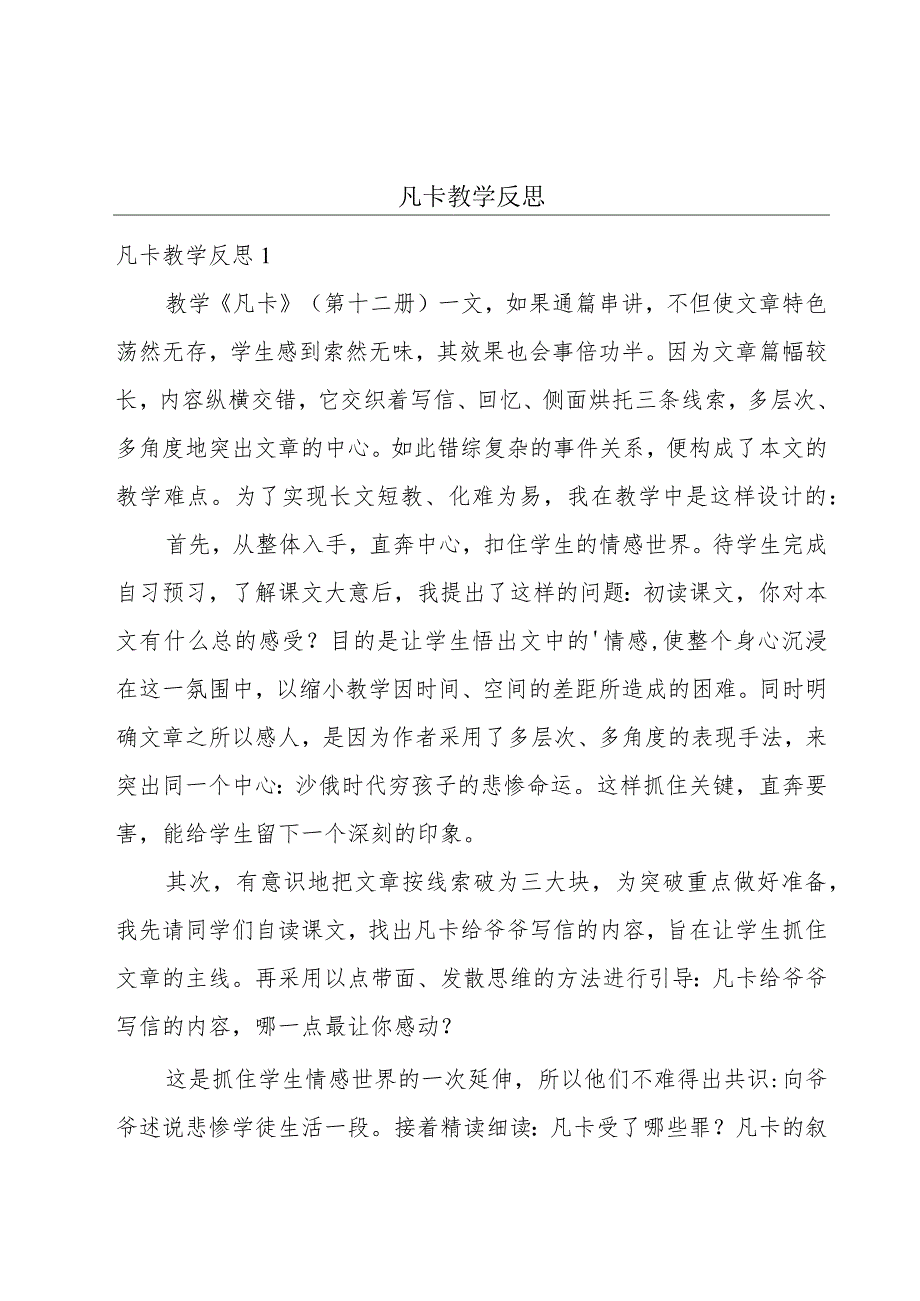 凡卡教学反思
凡卡教学反思1
教学《凡卡》（第十二册）一文，如果通篇串讲，不但使文章特色
荡然无存，学生感到索然无味，其效果也会事倍功半。因为文章篇幅较
长，内容纵横交错，它交织着写信、回忆、侧面烘托三条线索，多层次、
多角度地突出文章的中心。如此错综复杂的事件关系，便构成了本文的
教学难点。为了实现长文短教、化难为易，我在教学中是这样设计的：
首先，从整体入手，直奔中心，扣住学生的情感世界。待学生完成
自习预习，了解课文大意后，我提出了这样的问题：初读课文，你对本
文有什么总的感受？目的是让学生悟出文中的'情感,使整个身心沉浸
在这一氛围中，以缩小教学因时间、空间的差距所造成的困难。同时明
确文章之所以感人，是因为作者采用了多层次、多角度的表现手法，来
突出同一个中心：沙俄时代穷孩子的悲惨命运。这样抓住关键，直奔要
害，能给学生留下一个深刻的印象。
其次，有意识地把文章按线索破为三大块，为突破重点做好准备，
我先请同学们自读课文，找出凡卡给爷爷写信的内容，旨在让学生抓住
文章的主线。再采用以点带面、发散思维的方法进行引导：凡卡给爷爷
写信的内容，哪一点最让你感动？
这是抓住学生情感世界的一次延伸，所以他们不难得出共识:向爷
爷述说悲惨学徒生活一段。接着精读细读：凡卡受了哪些罪？凡卡的叙